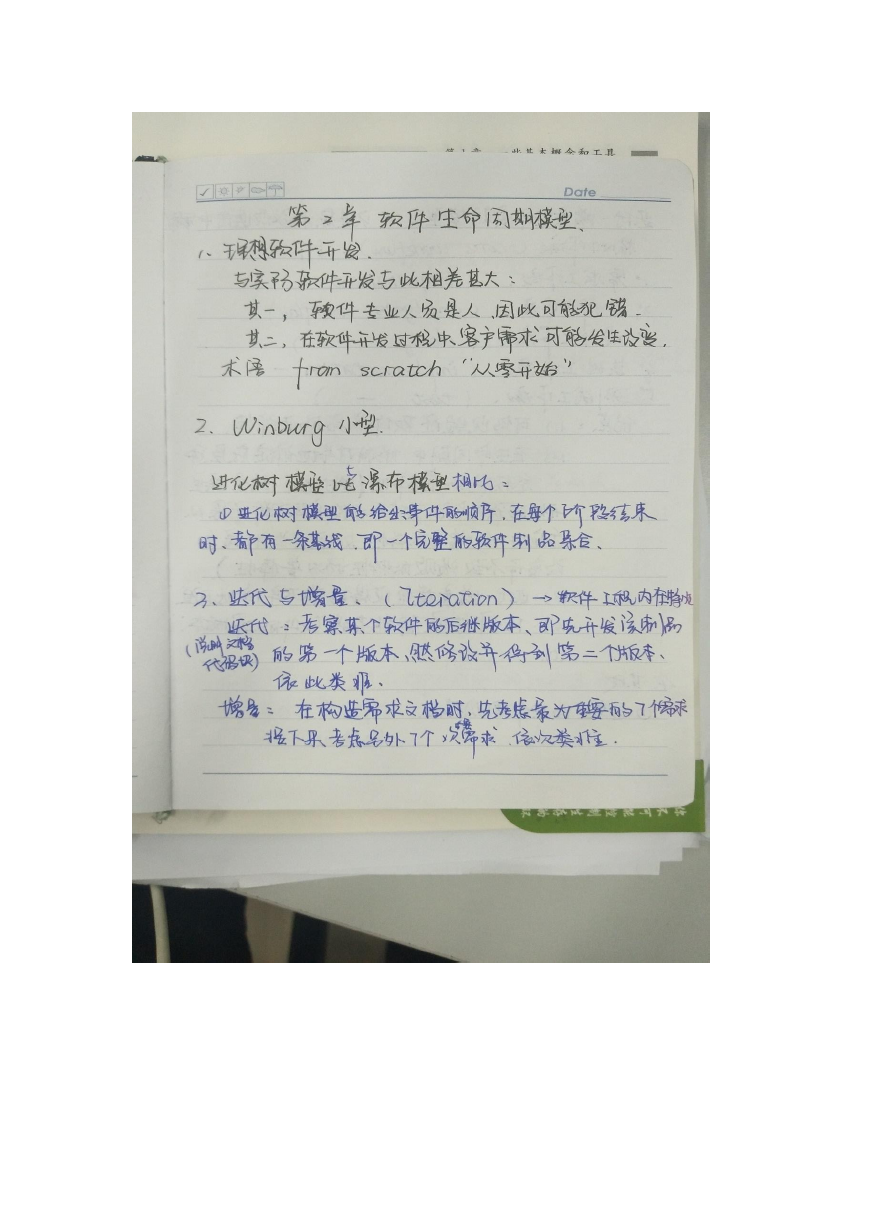 第1章 一些基本概念和工具
Date
第2章 软件生命周期模型.
1、理想软件开发.
与实际软件开发与此相差甚大：
其一，软件专业人员是人，因此可能犯错.
其二，在软件开发过程中、客户需求可能发生改变.
术语 from scratch “从零开始”
2. Winburg 小型.
进化树模型与瀑布模型相比：
①进化树模型能给出事件的顺序，在每个阶段结束
时、都有一条基线、即一个完整的软件制品集合、
3、迭代与增量、（Iteration）→软件工程内在特性
迭代：考察某个软件的后继版本、即先开发该制品
（说明文档
代码块）
的第一个版本、然修改并得到第二个版本、
依此类推、
增量：在构造需求文档时，先考虑最为重要的7个需求
接下来、考虑另外7个次重要需求、依次类推.